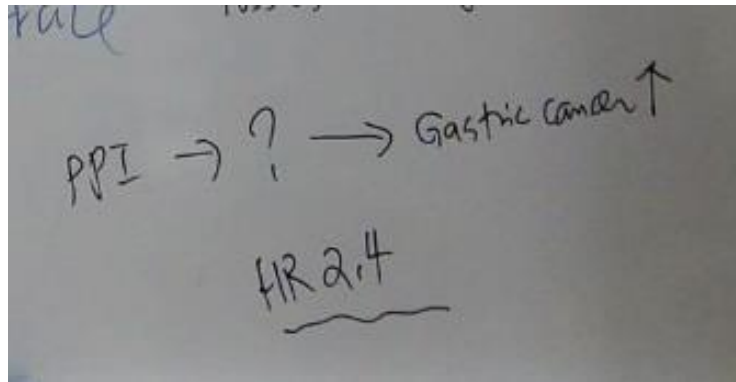 PPI → ? → Gastric cancer ↑
HR 2.4